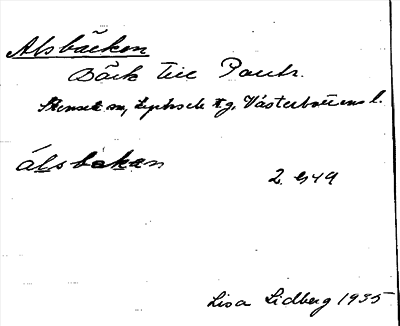 Alsbäcken
Bäck till
Stensele sn, Lycksele tg, Västerbottens l.
álsbäkan
2. G49
Lisa Lidberg 1935